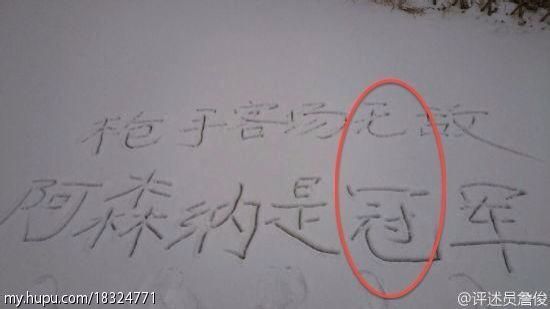 枪手客场无敌
阿森纳是冠军
my.hupu.com/18324771
@评述员詹俊